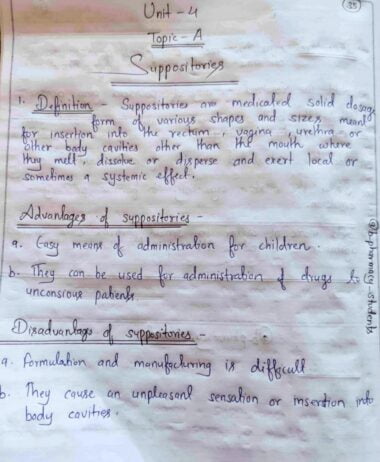 35
Unit - 4
Topic - A
Suppositories
1. Definition - Suppositories are medicated solid dosage
form of various shapes and sizes meant
for insertion into the rectum, vagina, urethra or
other body cavities other than the mouth where
they melt, dissolve or disperse and exert local or
sometimes a systemic effect.
Advantages of suppositories -
a. Easy means of administration for children.
b. They can be used for administration of drugs to
unconsious patients
Disadvantages of suppositories -
a. Formulation and manufacturing is difficult
b. They cause an unpleasant sensation or insertion into
body cavities.
@b-pharmacy-students